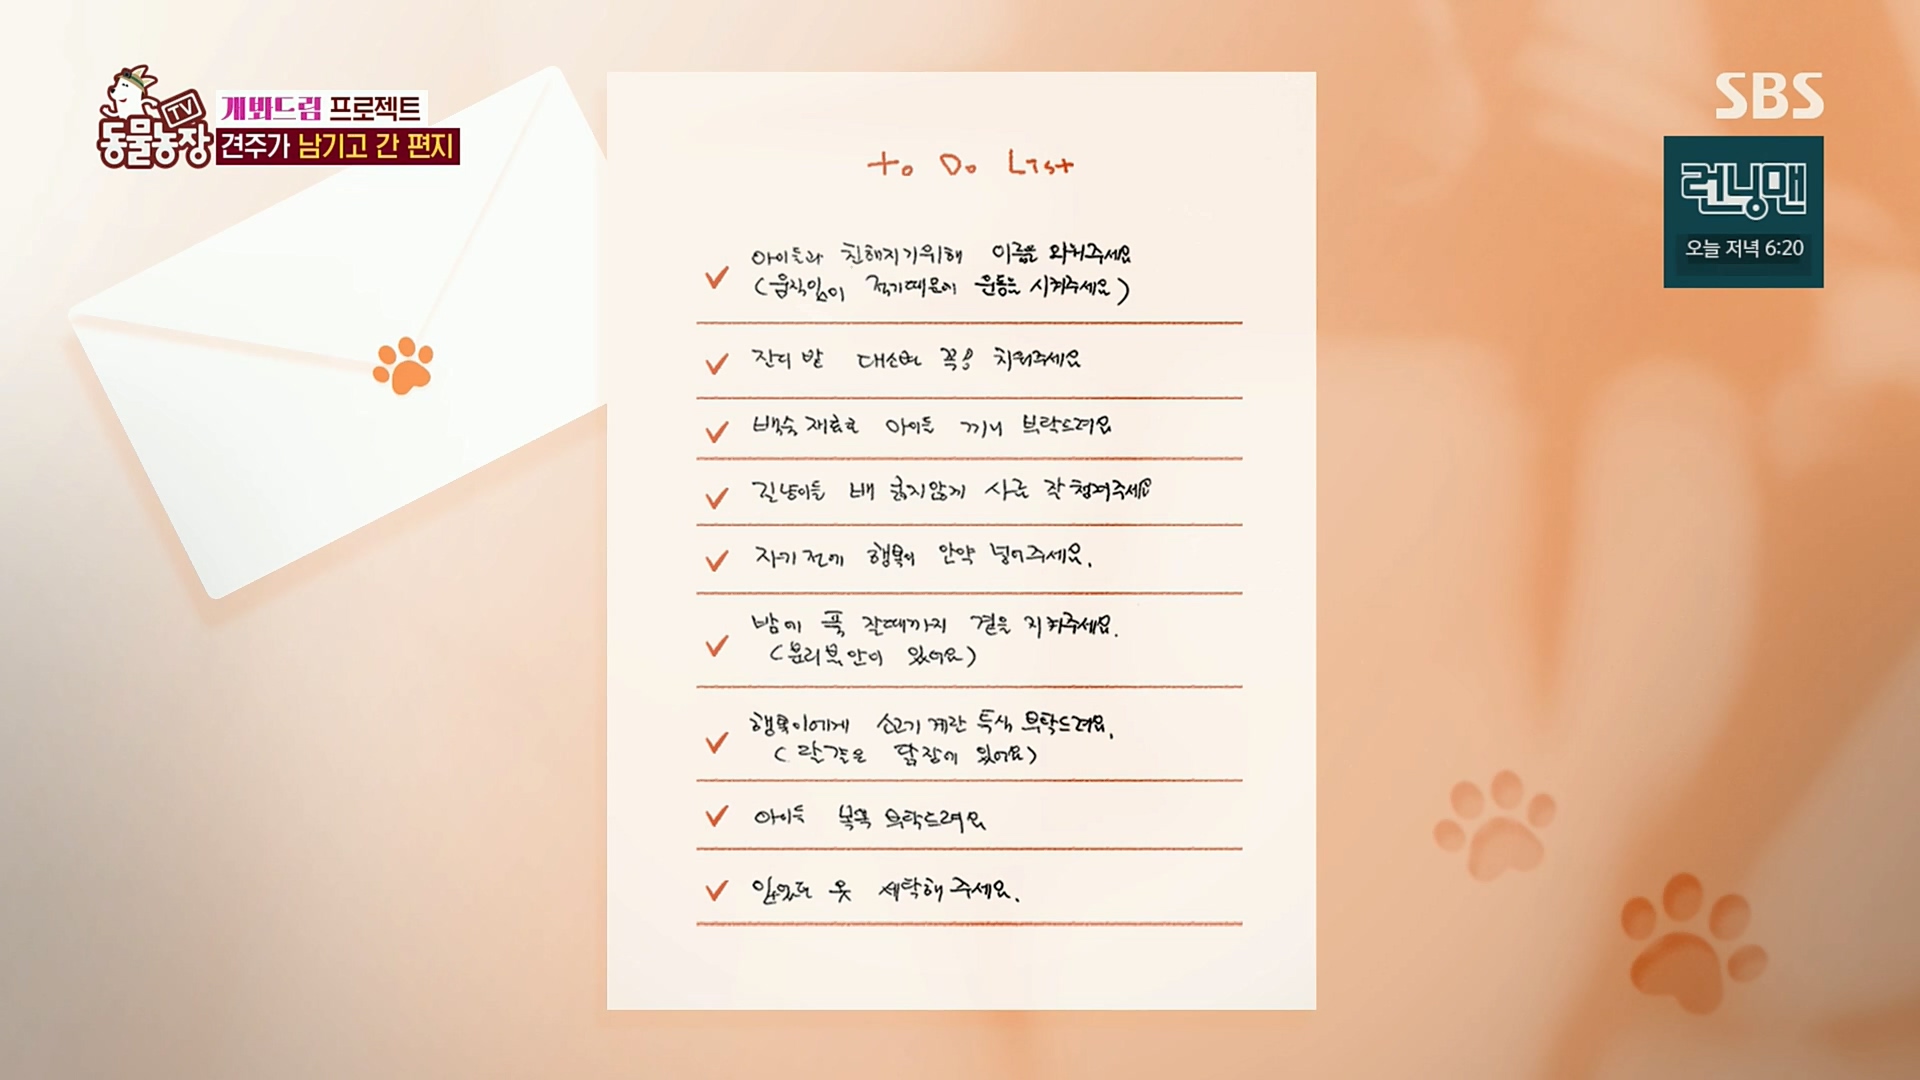 TV
동물농장
개봐드림 프로젝트
견주가 남기고 간 편지
SBS
런닝맨
오늘 저녁 6:20
To Do List
아이들과 친해지기위해 이름을 외워주세요
(움직임이 적기때문에 운동을 시켜주세요)
잔디 밭 대소변 꼭! 치워주세요
백숙 재료로 아이들 끼니 부탁드려요
길냥이들 배 굶지않게 사료 잘 챙겨주세요
자기 전에 행복이 안약 넣어주세요.
밤이 푹 잘때까지 곁을 지켜주세요.
(분리불안이 있어요)
행복이에게 소고기 계란 특식 부탁드려요.
(달걀은 닭장에 있어요)
아이들 목욕 부탁드려요
입었던 옷 세탁해 주세요.